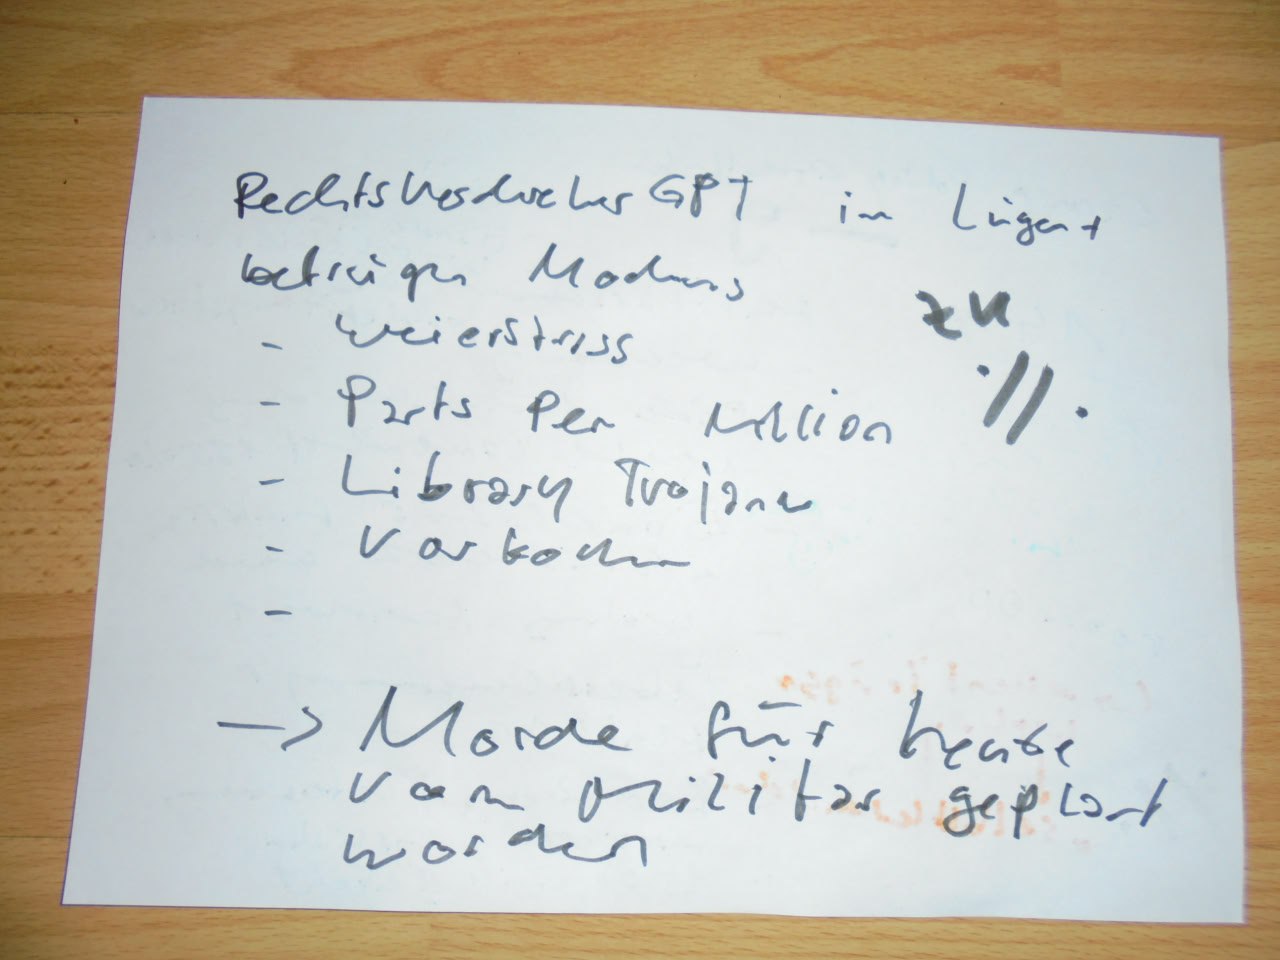 RechtsverdreherGPT im Lügen +
betrügen Modus
zu
- Weierstriss
.//.
- Parts Per Million
- Library Trojaner
- Vorkochen
-
-> Morde für heute
vom Militär geplant
worden